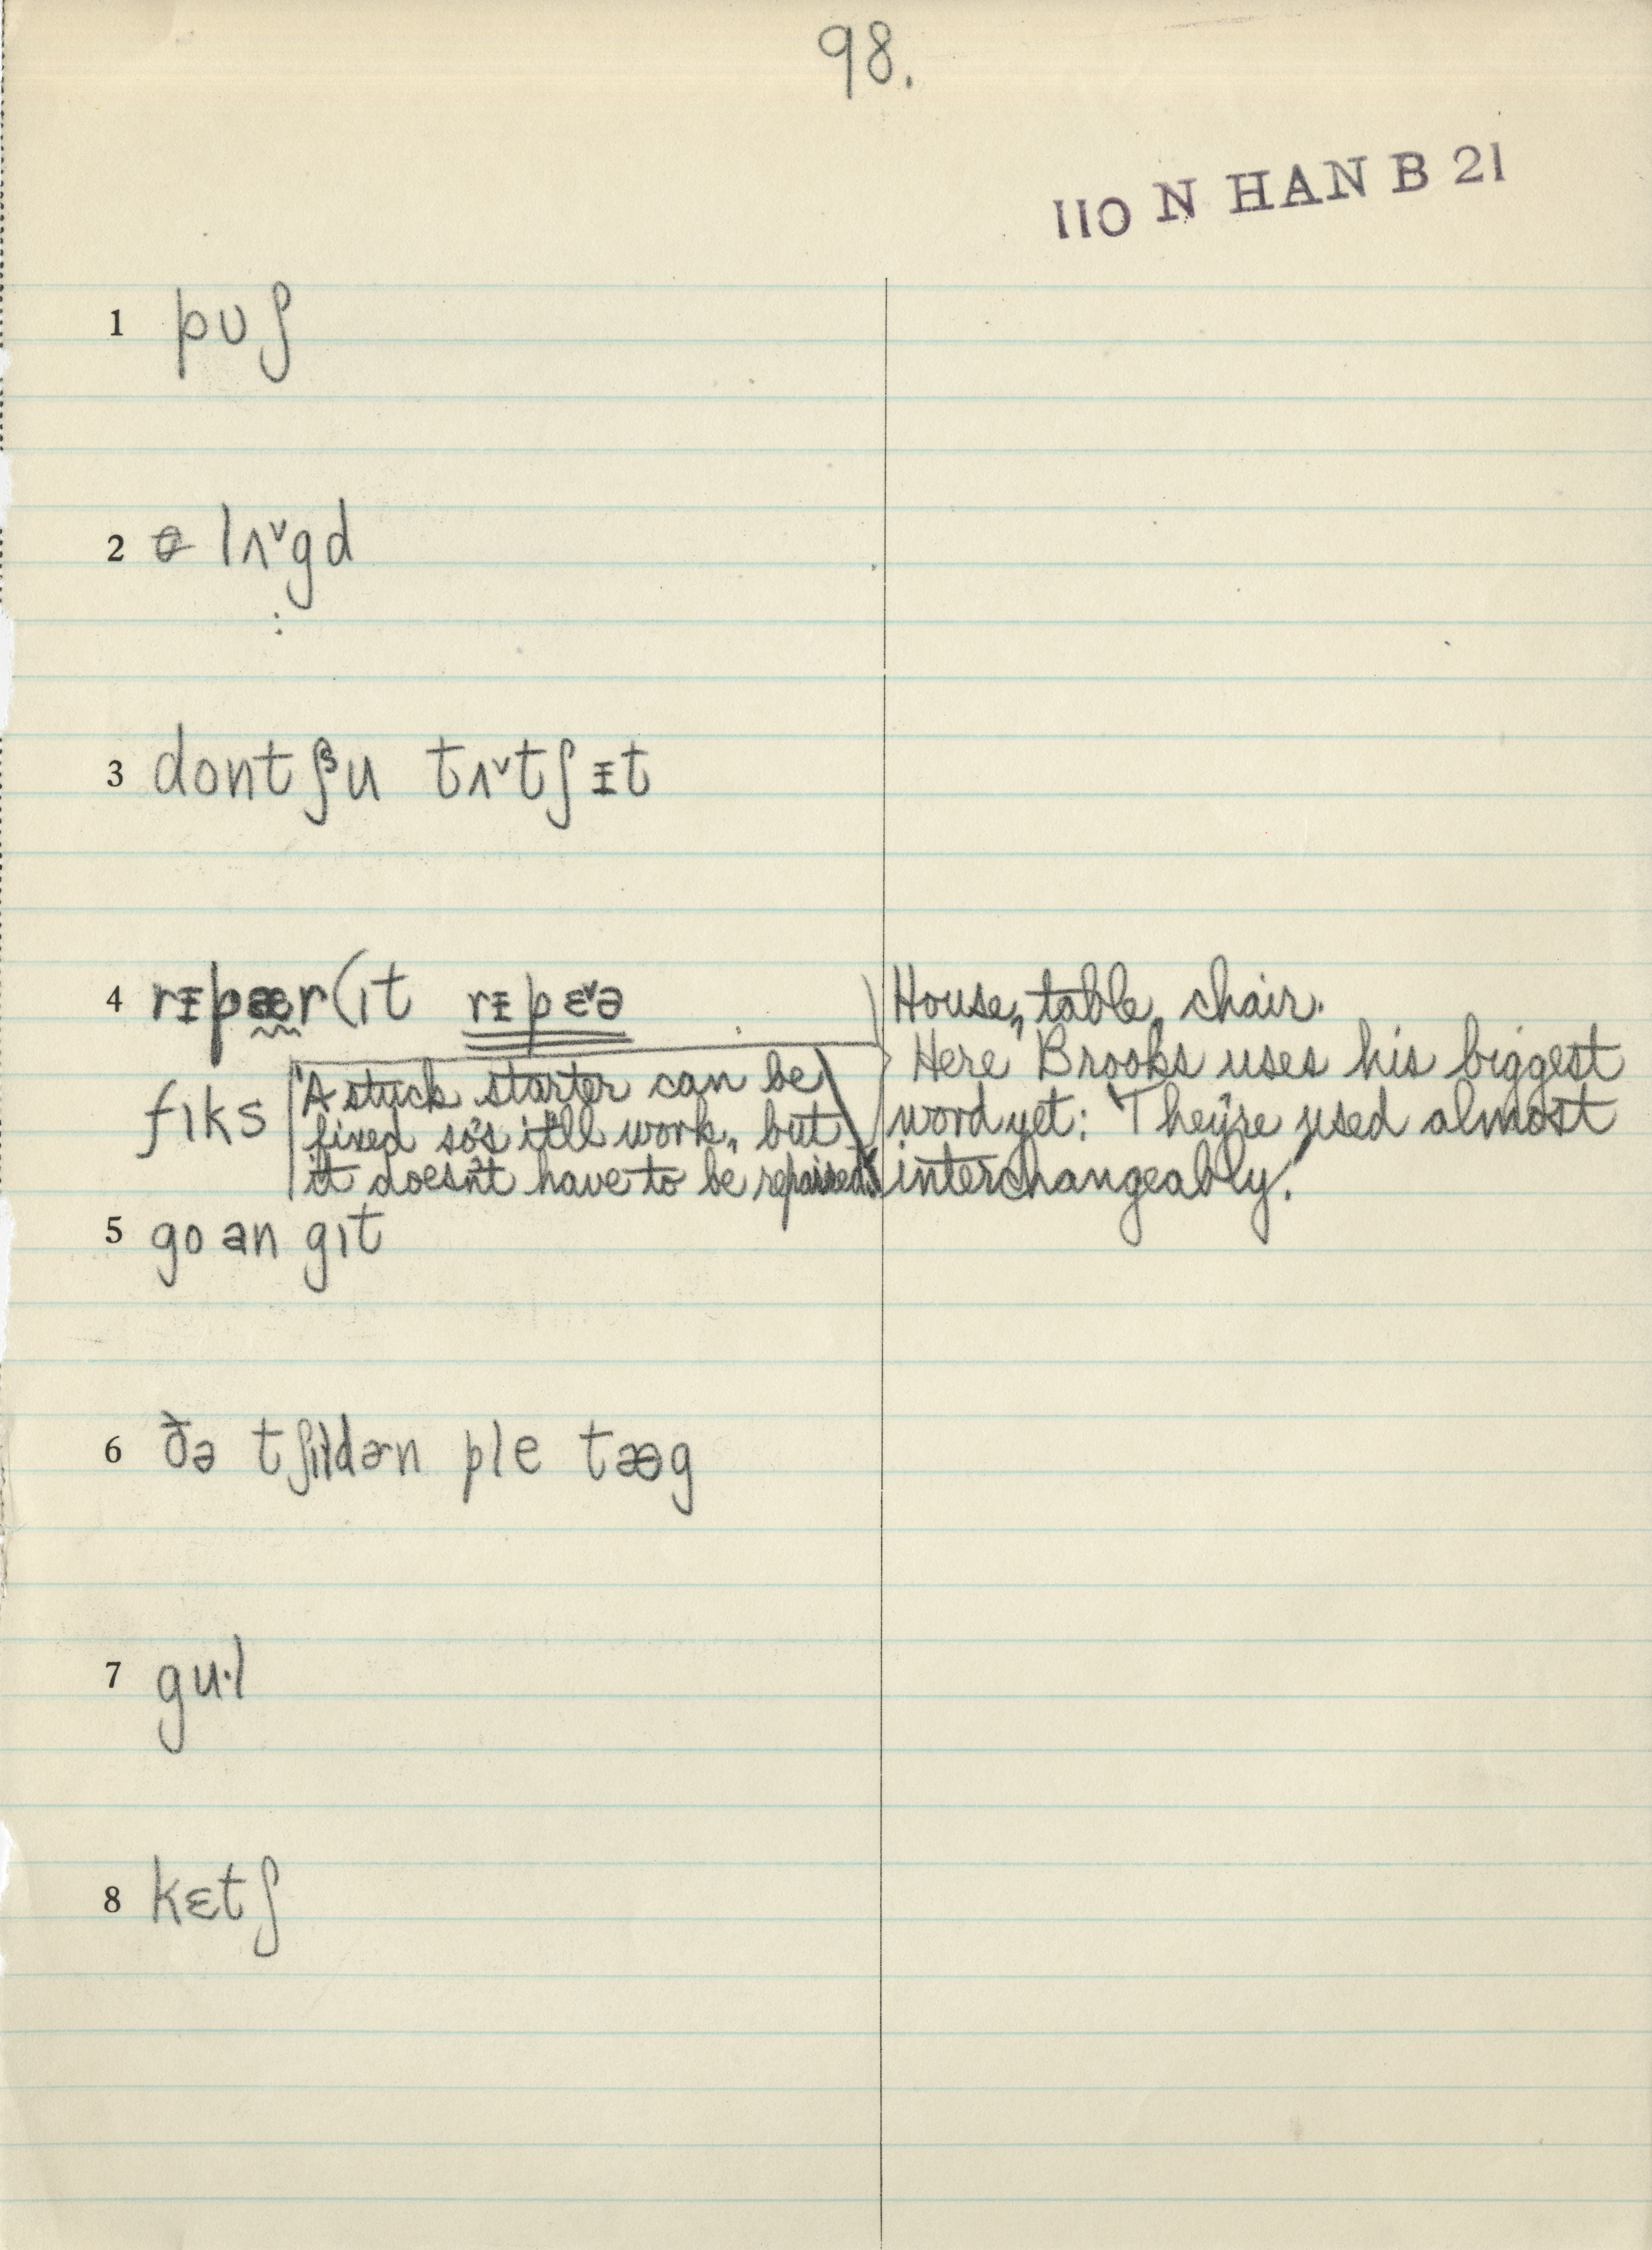 98.
110 N HAN B 21
1 pʊʃ
2 lʌ˅gd
3 dontʃu tʌ˅tʃᵻt
4 rᵻpær(ɪt rᵻpɛ˅ə House, table, chair.
Here Brooks uses his biggest
fɪks "A stuck starter can be
word yet: "They're used almost
fixed so's it'll work, but
interchangeably."
it doesn't have to be repaired."
5 go an gɪt
6 ðə tʃɪldɚn ple tæg
7 gu·l
8 kɛtʃ